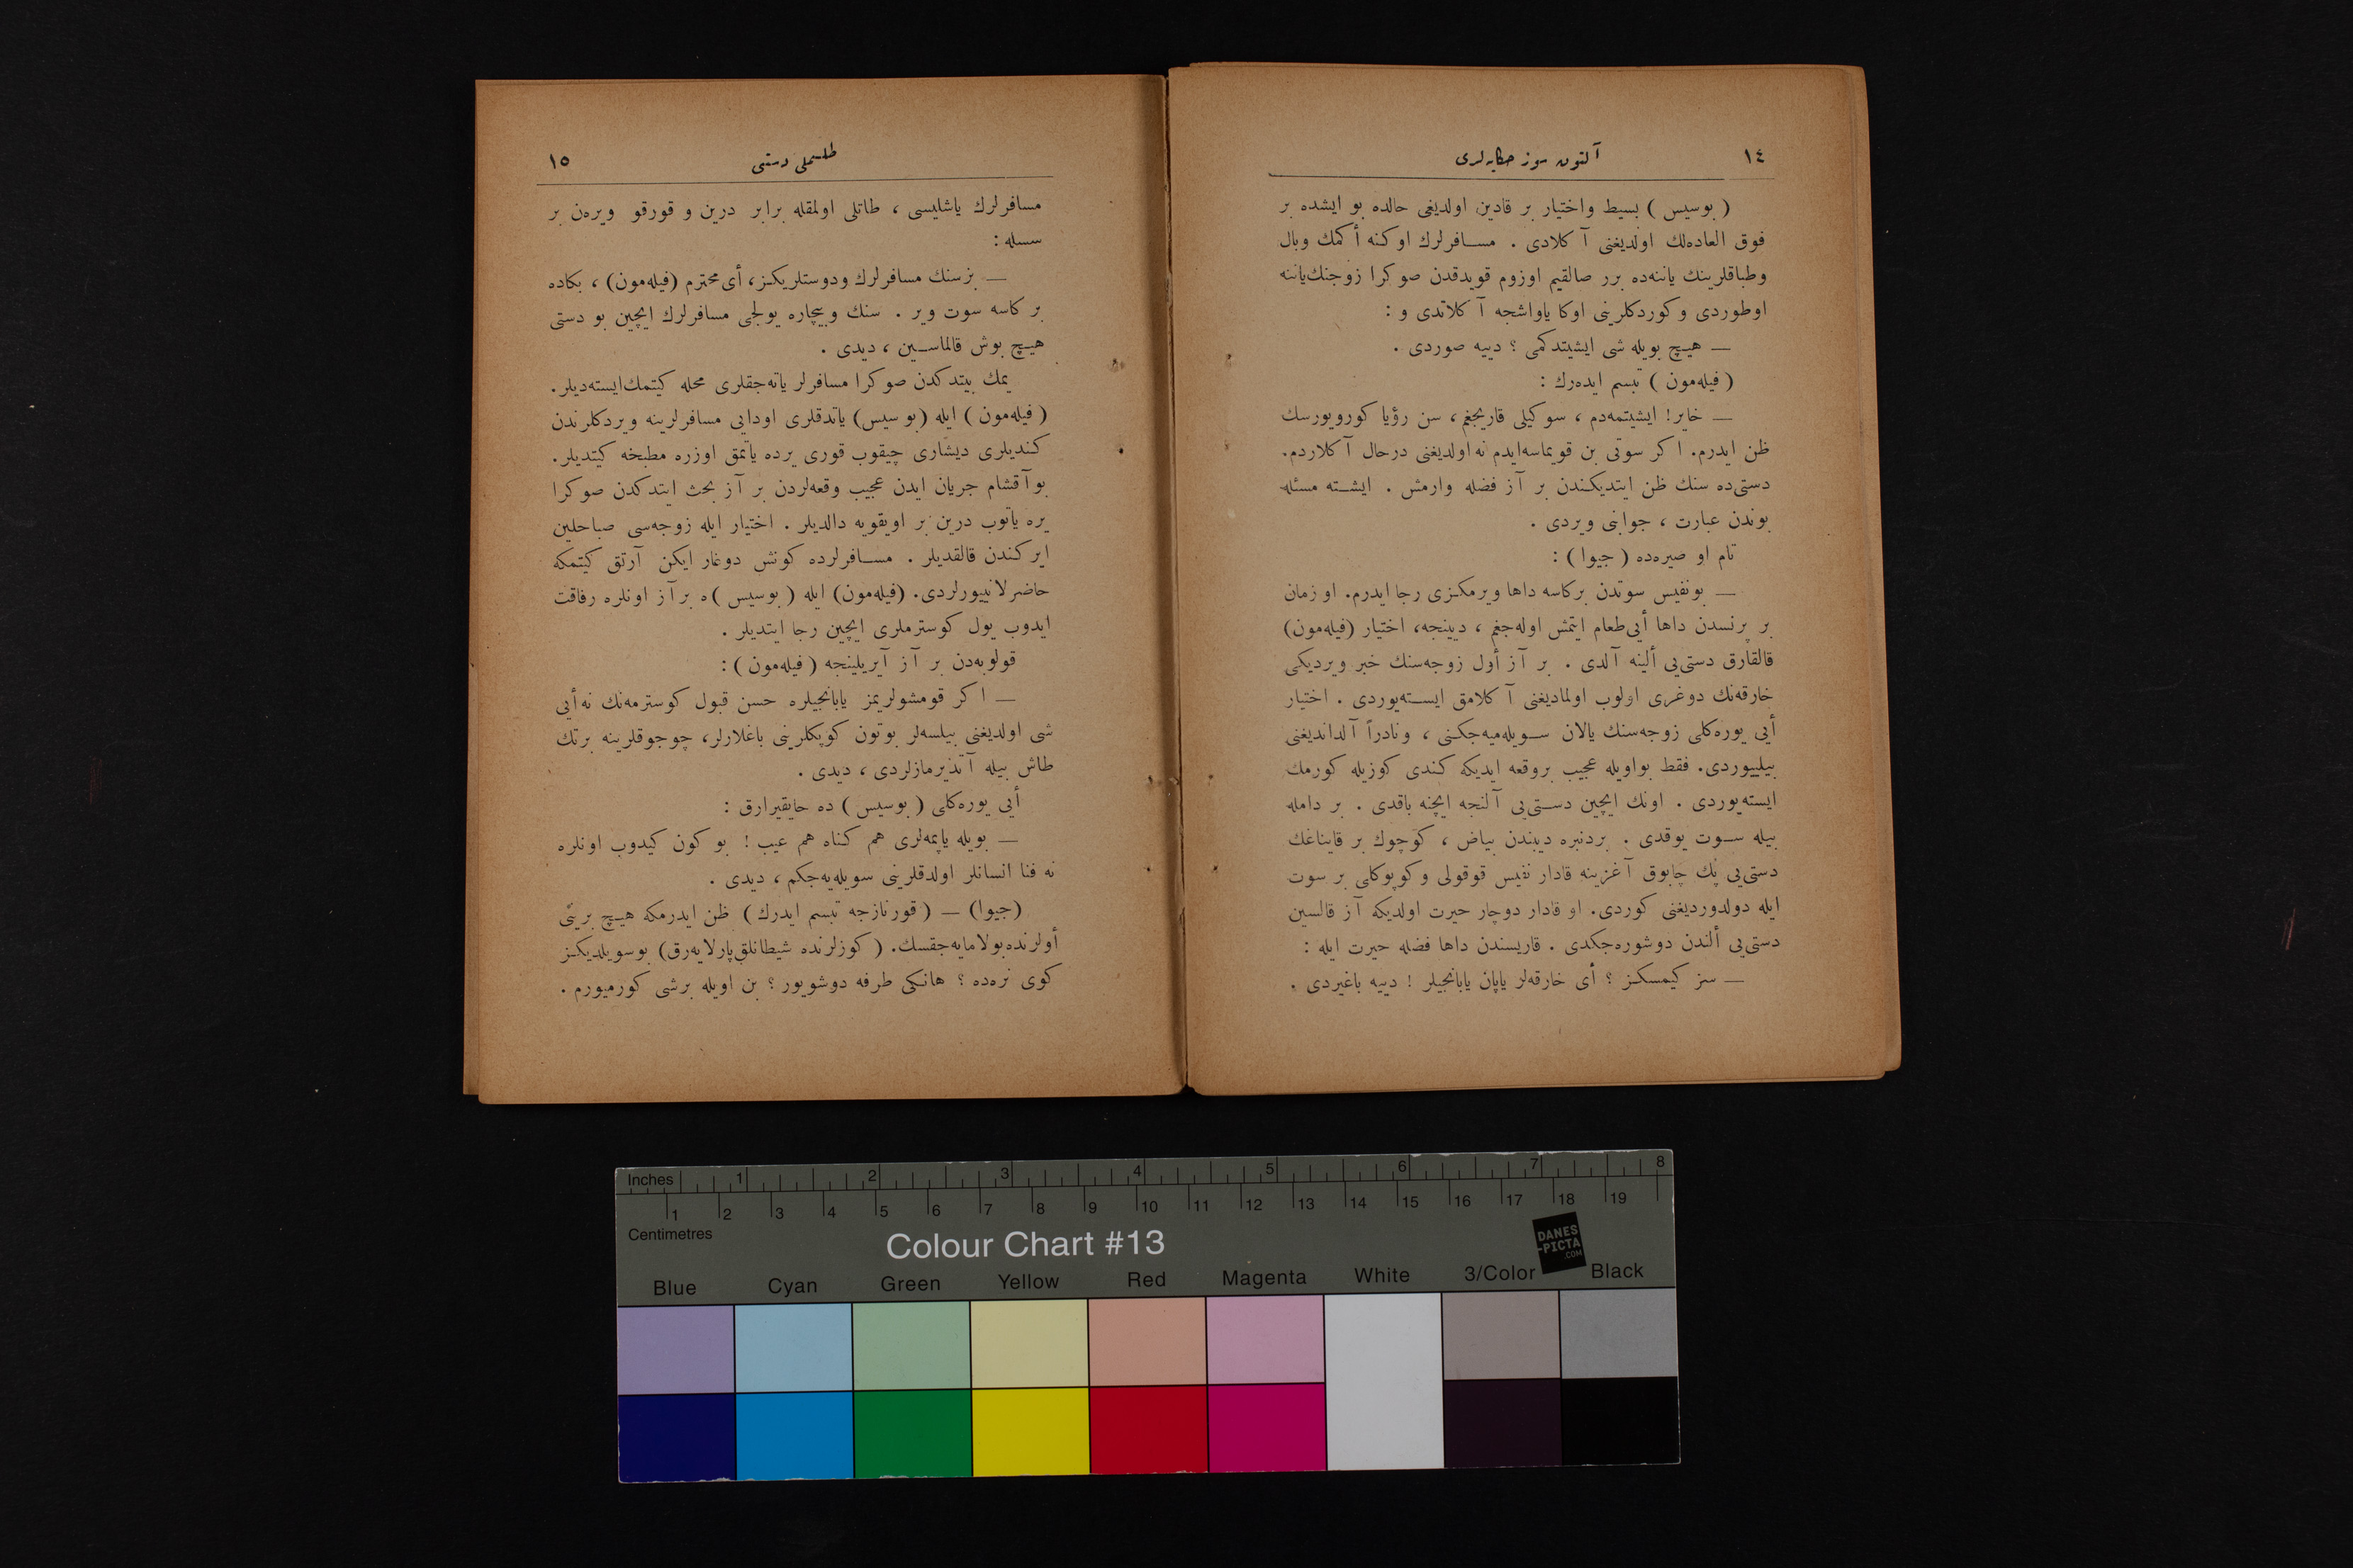 ١٤
آلتون سوز حكايه‌لرى
( بوسيس ) بسيط واختيار بر قادين اولديغى حالده بو ايشده بر
فوق العاده‌لك اولديغنى آ كلادى . مسافرلرك اوكنه أكمك وبال
وطباقلرينك ياننه‌ده برر صالقيم اوزوم قويدقدن صوكرا زوجنك‌ياننه
اوطوردى و كوردكلرينى اوكا ياواشجه آ كلاتدى و :
— هيچ بويله شى ايشيتدكمى ؟ دييه صوردى .
( فيله‌مون ) تبسم ايده‌رك :
— خاير! ايشيتمه‌دم ، سوكيلى قاريجغم ، سن رؤيا كورويورسك
ظن ايدرم. اكر سوتى بن قويماسه‌ايدم نه اولديغنى درحال آ كلاردم.
دستى‌ده سنك ظن ايتديكندن بر آز فضله وارمش . ايشته مسئله
بوندن عبارت ، جوابنى ويردى .
تام او صيره‌ده ( جيوا ) :
— بونفيس سوتدن بركاسه داها ويرمكزى رجا ايدرم. او زمان
بر پرنسدن داها أيى‌طعام ايتمش اوله‌جغم ، دينجه، اختيار (فيله‌مون)
قالقارق دستى‌يى ألينه آلدى . بر آز أول زوجه‌سنك خبر ويرديكى
خارقه‌نك دوغرى اولوب اولماديغنى آ كلامق ايسته‌يوردى . اختيار
أيى يوره‌كلى زوجه‌سنك يالان سويله‌ميه‌جكنى ، ونادراً آلدانديغنى
بيلييوردى. فقط بواويله عجيب بروقعه ايديكه كندى كوزيله كورمك
ايسته‌يوردى . اونك ايچين دستى‌يى آلنجه ايچنه باقدى . بر دامله
بيله سوت يوقدى . بردنبره ديبندن بياض ، كوچوك بر قايناغك
دستى‌يى پك چابوق آغزينه قادار نفيس قوقولى و كوپوكلى بر سوت
ايله دولدورديغنى كوردى. او قادار دوچار حيرت اولديكه آز قالسين
دستى‌يى ألندن دوشوره‌جكدى . قاريسندن داها فضله حيرت ايله :
— سز كيمسكز ؟ أى خارقه‌لر ياپان يابانجيلر ! دييه باغيردى .
طلسملى دستى
١٥
مسافرلرك ياشليسى ، طاتلى اولمقله برابر درين و قورقو ويره‌ن بر
سسله :
— بزسنك مسافرلرك ودوستلريكز، أى محترم (فيله‌مون) ، بكاده
بر كاسه سوت وير . سنك وبيچاره يولجى مسافرلرك ايچين بو دستى
هيچ بوش قالماسين ، ديدى .
يمك بيتدكدن صوكرا مسافرلر ياته‌جقلرى محله كيتمك‌ايسته‌ديلر.
( فيله‌مون ) ايله (بوسيس) ياتدقلرى اودايى مسافرلرينه ويردكلرندن
كنديلرى ديشارى چيقوب قورى يرده ياتمق اوزره مطبخه كيتديلر.
بوآقشام جريان ايدن عجيب وقعه‌لردن بر آز بحث ايتدكدن صوكرا
يره ياتوب درين بر اويقويه دالديلر . اختيار ايله زوجه‌سى صباحلين
ايركندن قالقديلر . مسافرلرده كونش دوغار ايكن آرتق كيتمكه
حاضرلانييورلردى. (فيله‌مون) ايله ( بوسيس )ه برآز اونلره رفاقت
ايدوب يول كوسترملرى ايچين رجا ايتديلر .
قولوبه‌دن بر آز آيريلينجه ( فيله‌مون ) :
— اكر قومشولريمز يابانجيلره حسن قبول كوسترمه‌نك نه أيى
شى اولديغنى بيلسه‌لر بوتون كوپكلرينى باغلارلر، چوجوقلرينه برتك
طاش بيله آتديرمازلردى ، ديدى .
أيى يوره‌كلى ( بوسيس ) ده حايقيرارق :
— بويله ياپمه‌لرى هم كناه هم عيب ! بو كون كيدوب اونلره
نه فنا انسانلر اولدقلرينى سويله‌يه‌جكم ، ديدى .
(جيوا) — ( قورنازجه تبسم ايدرك ) ظن ايدرمكه هيچ برينى
أولرنده‌بولامايه‌جقسك. ( كوزلرنده شيطانلق‌پارلايه‌رق) بوسويلديكز
كوى نره‌ده ؟ هانكى طرفه دوشويور ؟ بن اويله برشى كورميورم .
Inches 1 2 3 4 5 6 7 8
1 2 3 4 5 6 7 8 9 10 11 12 13 14 15 16 17 18 19
Centimetres
Colour Chart #13
DANES
-PICTA
.COM
Blue Cyan Green Yellow Red Magenta White 3/Color Black